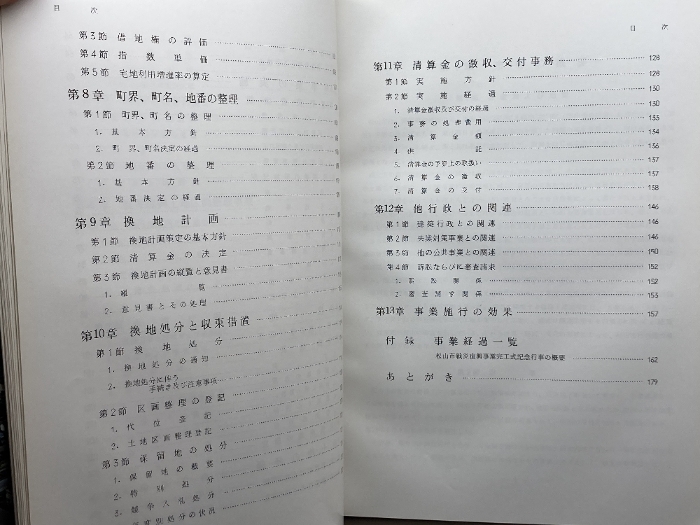 目 次
第3節 借地権の評価
第4節 指数単価
第5節 宅地利用増進率の算定
第8章 町界、町名、地番の整理
第1節 町界、町名の整理
1. 基本方針
2. 町界、町名決定の経過
第2節 地番の整理
1. 基本方針
2. 地番決定の経過
第9章 換地計画
第1節 換地計画策定の基本方針
第2節 清算金の決定
第3節 換地計画の縦覧と意見書
1. 縦覧
2. 意見書とその処理
第10章 換地処分と収束措置
第1節 換地処分
1. 換地処分の通知
2. 換地処分に伴う
手続き及び注意事項
第2節 区画整理の登記
1. 代位登記
2. 土地区画整理登記
第3節 保留地の処分
1. 保留地の概要
2. 特別処分
3. 競争入札処分
年度別処分の状況
目 次
第11章 清算金の徴収、交付事務 128
第1節 実施方針 128
第2節 実施経過 130
1. 清算金徴収及び交付の経過 130
2. 事務の処理費用 133
3. 清算金額 134
4. 供託 137
5. 清算金の予算上の取扱い 137
6. 清算金の徴収 137
7. 清算金の交付 138
第12章 他行政との関連 146
第1節 建築行政との関連 146
第2節 失業対策事業との関連 146
第3節 他の公共事業との関連 150
第4節 訴訟ならびに審査請求 152
1. 訴訟関係 152
2. 審査請求関係 153
第13章 事業施行の効果 157
付録 事業経過一覧
松山市戦災復興事業完工式記念行事の概要 162
あとがき 179